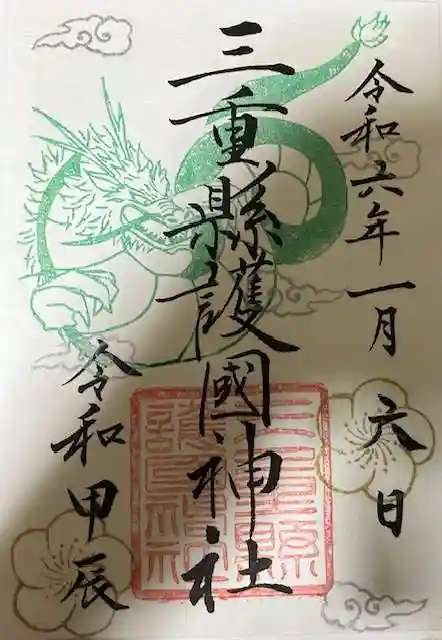 令和六年一月六日
三重縣護國神社
令和甲辰
三重縣護國神社